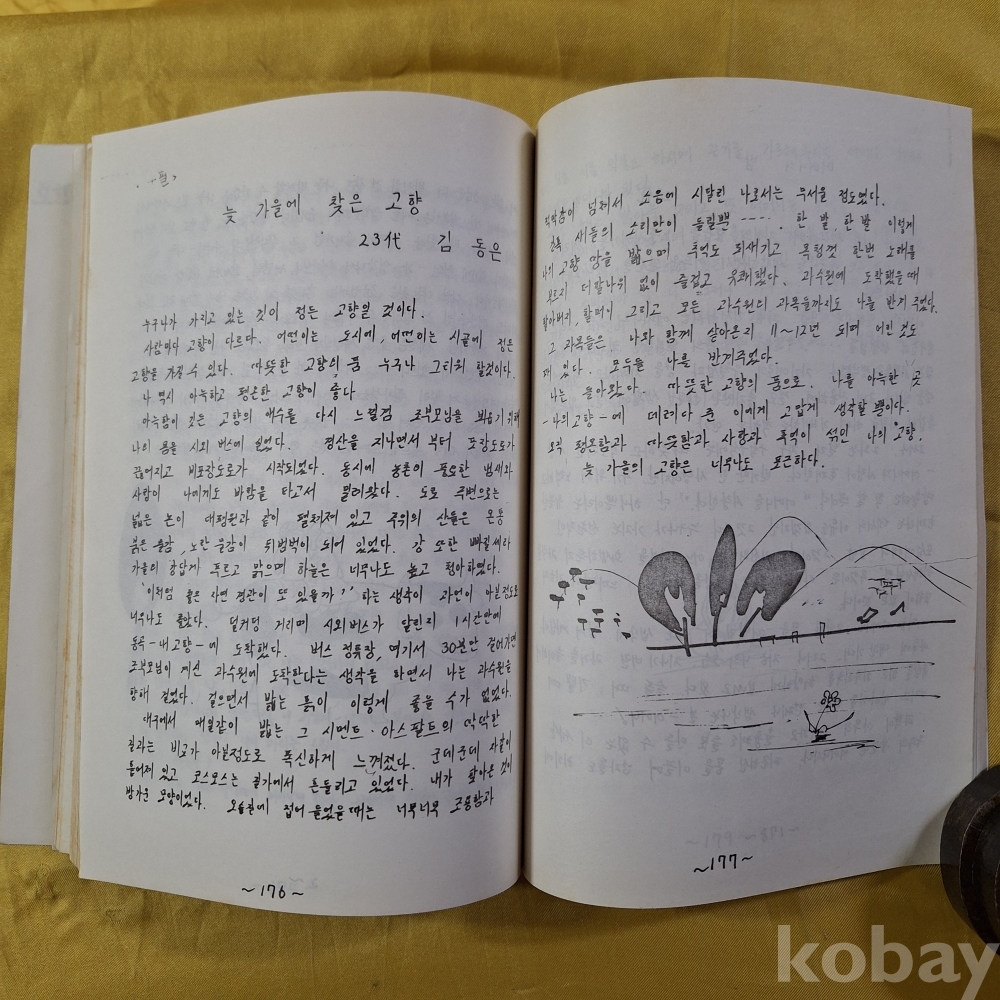 <수필>
늦 가을에 찾은 고향
23代 김 동은
누구나가 가지고 있는 것이 정든 고향일 것이다.
사람마다 고향이 다르다. 어떤이는 도시에, 어떤이는 시골에 정든
고향을 가질 수 있다. 따뜻한 고향의 품 누구나 그리워 할것이다.
나 역시 아늑하고 평온한 고향이 좋다
아늑함이 깃든 고향의 애수를 다시 느낄겸 조부모님을 뵈옵기 위해
나의 몸을 시외 버스에 실었다. 경산을 지나면서 부터 포장도로가
끊어지고 비포장도로가 시작되었다. 동시에 농촌의 풍요한 냄새와
사람이 나에게도 바람을 타고서 밀려왔다. 도로 주변으로는
넓은 논이 대평원과 같이 펼쳐져 있고 주위의 산들은 온통
붉은 물감, 노란 물감이 뒤범벅이 되어 있었다. 강 또한 빠질세라
가을의 강답게 푸르고 맑으며 하늘은 너무나도 높고 청아하였다.
"이처럼 좋은 자연 경관이 또 있을까" 하는 생각이 과언이 아닐정도로
너무나도 좋았다. 덜커덩 거리며 시외버스가 달린지 1시간만에
동곡-내고향-에 도착했다. 버스 정류장, 여기서 30분만 걸어가면
조부모님이 계신 과수원에 도착한다는 생각을 하면서 나는 과수원을
향해 걸었다. 걸으면서 밟는 흙이 이렇게 좋을 수가 없었다.
대구에서 매일같이 밟는 그 시멘트·아스팔트의 딱딱한
길과는 비교가 아닐정도로 푹신하게 느껴졌다. 군데군데 자갈이
틀어져 있고 코스모스는 길가에서 흔들리고 있었다. 내가 찾아온 것이
반가운 모양이었다. 오솔길에 접어 들었을 때는 너무너무 조용함과
~176~
적막함이 넘쳐서 소음에 시달린 나로서는 무서울 정도였다.
간혹 새들의 소리만이 들릴뿐----. 한 발, 한발 이렇게
나의 고향 땅을 밟으며 추억도 되새기고 목청껏 한번 노래를
부르지 더할나위 없이 즐겁고 유쾌했다. 과수원에 도착했을때
할아버지, 할머니 그리고 모든 과수원의 과목들까지도 나를 반겨 주었다.
그 과목들은 나와 함께 살아온지 11~12년 되며 어린 것도
꽤 있다. 모두들 나를 반겨주었다.
나는 돌아왔다. 따뜻한 고향의 품으로. 나를 아늑한 곳
-나의고향-에 데려다 준 이에게 고맙게 생각할 뿐이다.
오직 평온함과 따뜻함과 사랑과 추억이 섞인 나의 고향.
늦 가을의 고향은 너무나도 포근하다.
~177~
kobay